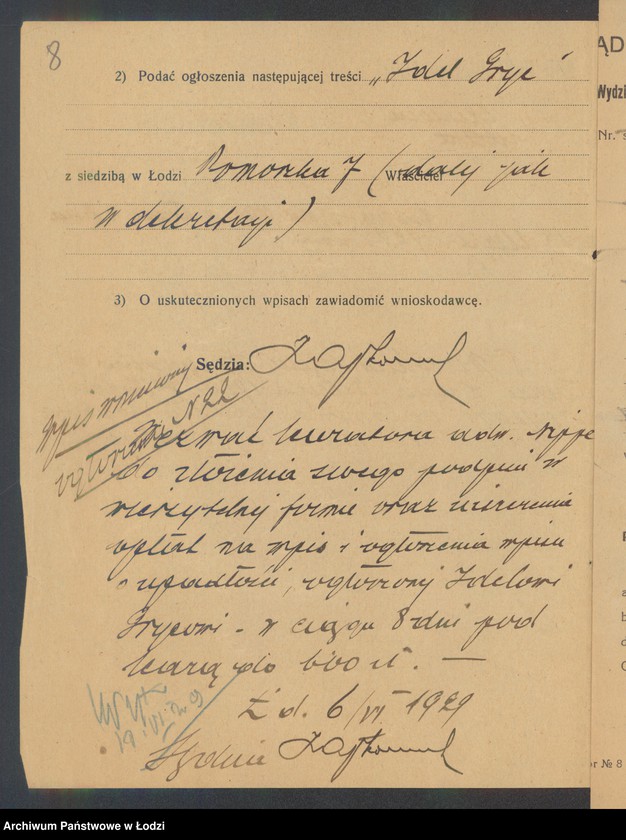 8
2) Podać ogłoszenia następującej treści „Idel Gryc"
z siedzibą w Łodzi Pomorska 7 (Właściciel dalej jak
w dekretacji)
3) O uskutecznionych wpisach zawiadomić wnioskodawcę.
Sędzia:
Wpis wniesiony
ogłoszenie N 22
Wezwać kuratora adw.
do złożenia swego podpisu w
wierzytelnej formie oraz uiszczenia
opłat na wpis i ogłoszenia wpisu
o upadłości, ogłoszonej Idelowi
Grycowi - w ciągu 8 dni pod
karą do 600 zł. —
Ł d. 6/VI 1929
19 VI 29
Sędzia
ĄD
Wydzi
Nr.
or № 8
Archiwum Państwowe w Łodzi